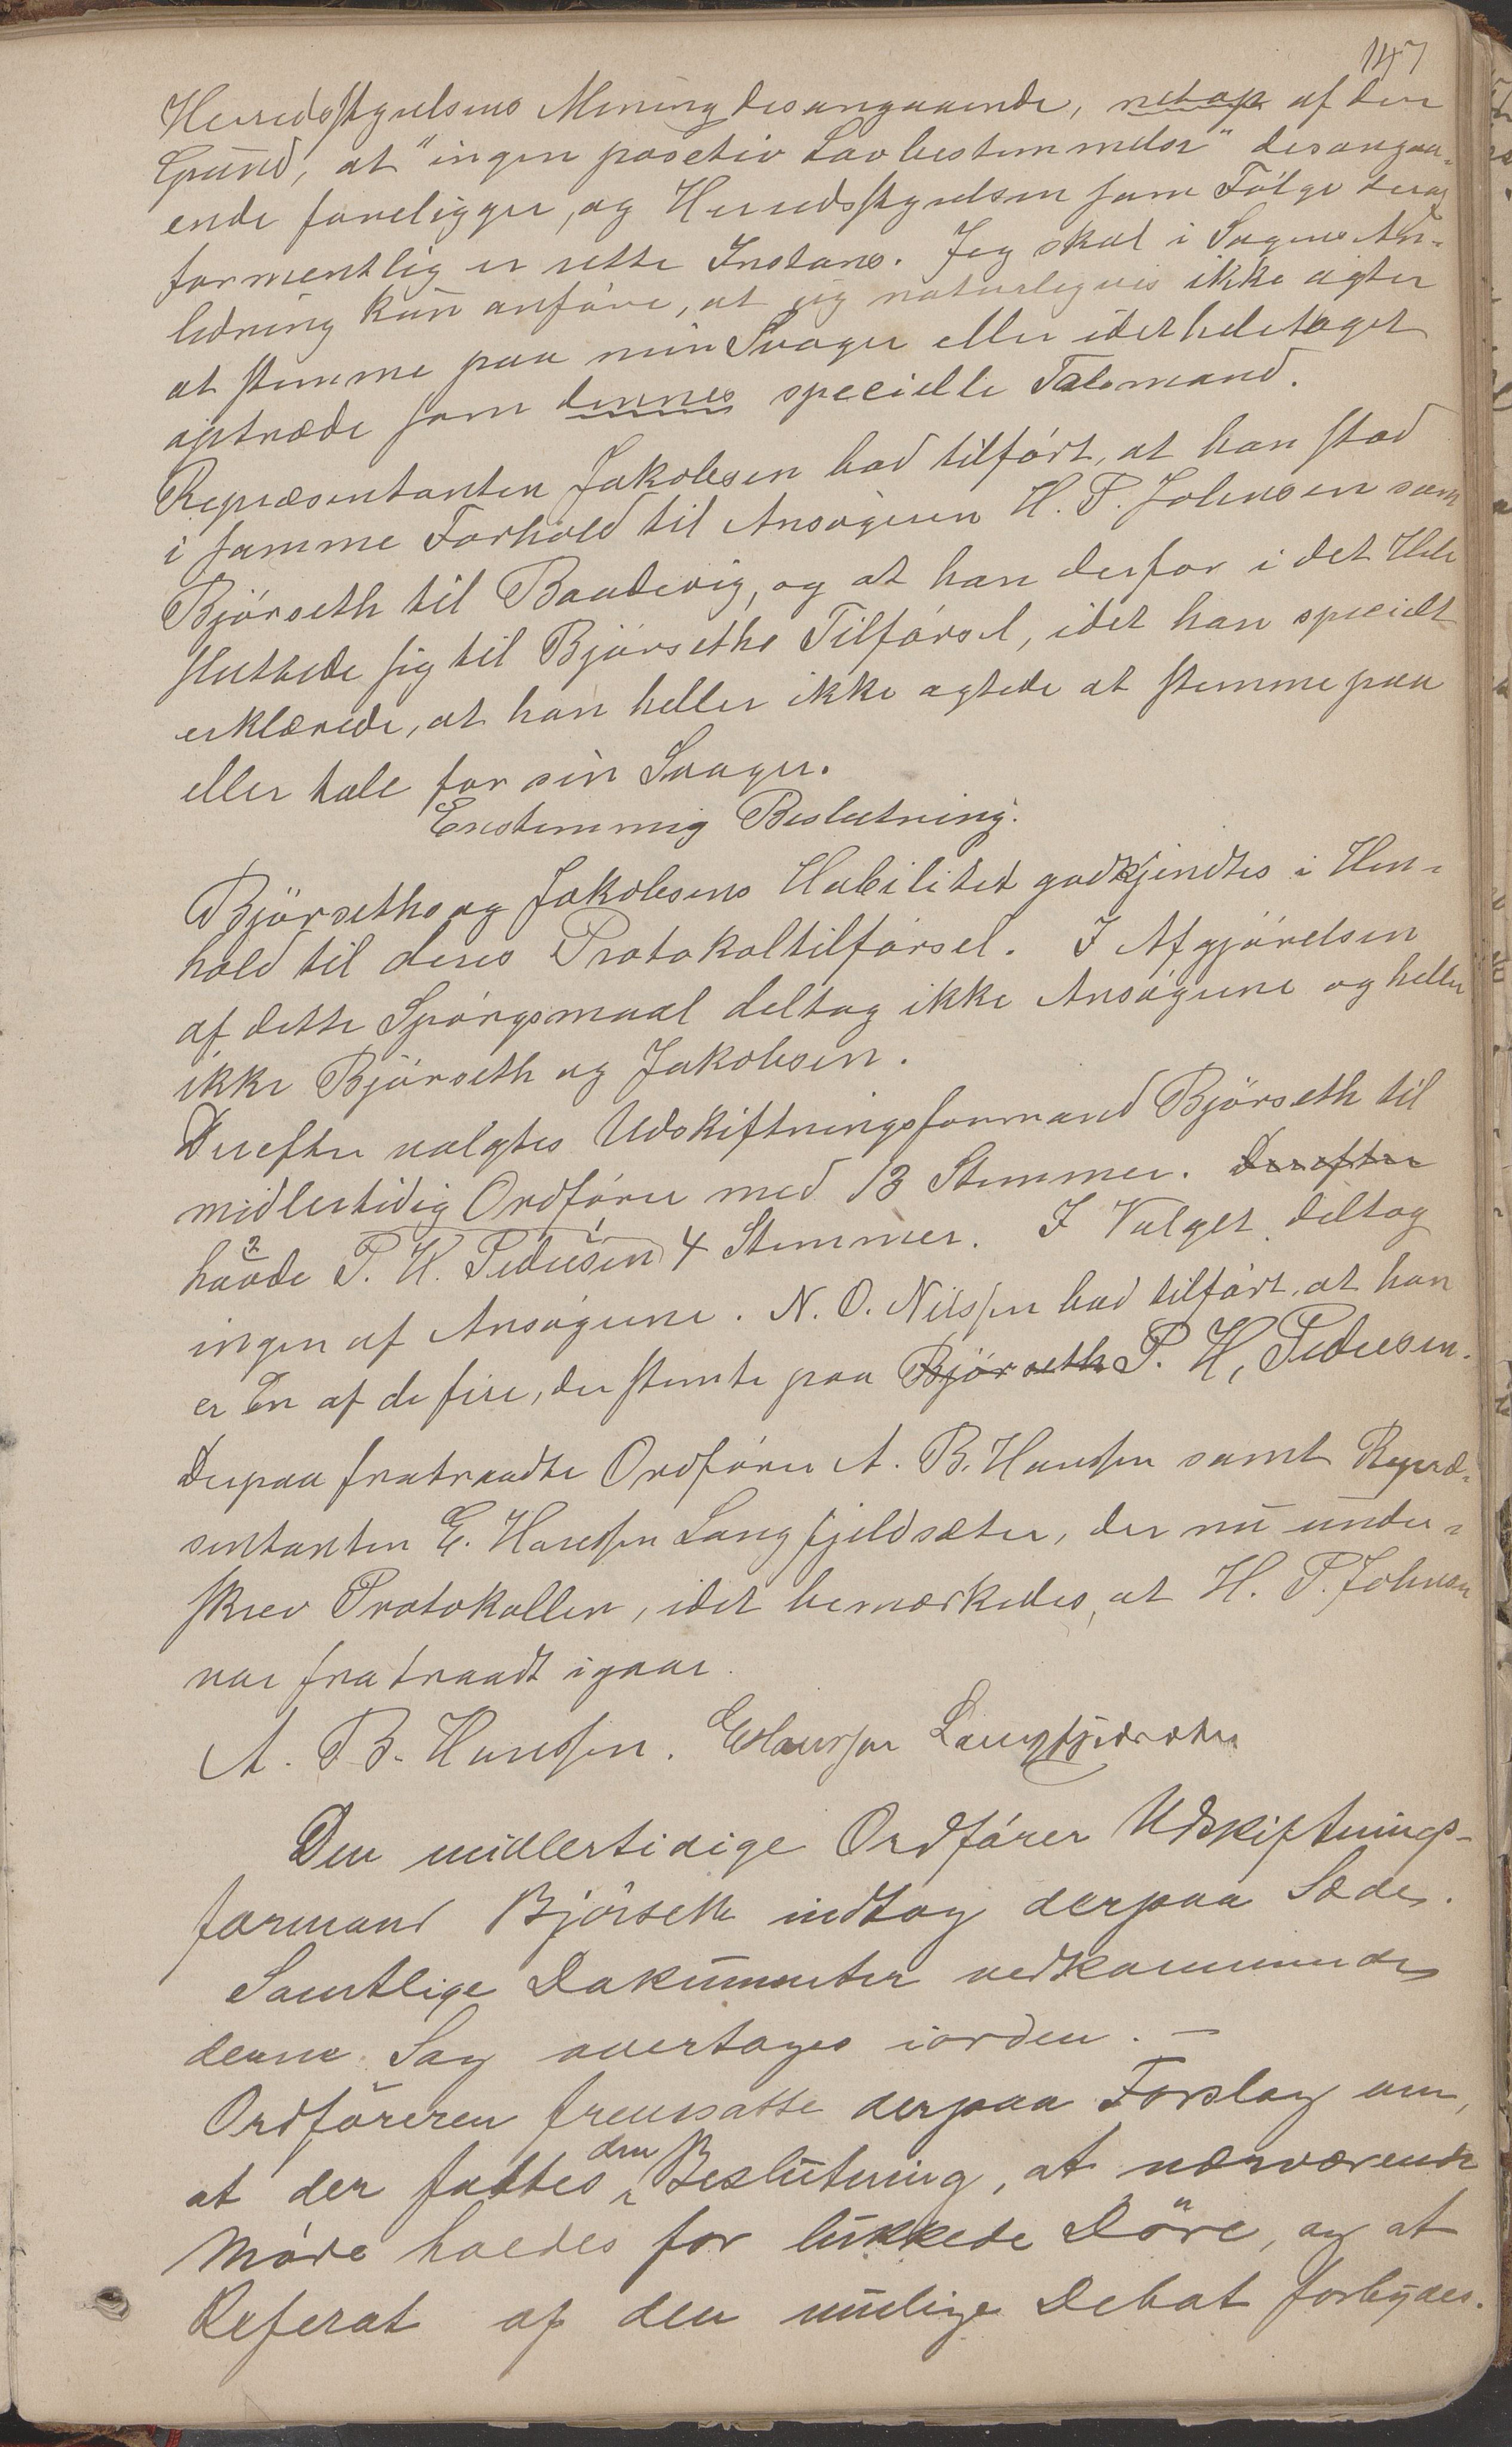 147
Herredsstyrelsens Mening desangaaende, netop af den
Grund, at "ingen posetiv Lovbestemmelse" desangaa-
ende foreligger, og Herredsstyrelsen som Følge deraf
formentlig er rette Instans. Jeg skal i Sagens An-
ledning kun anføre, at jeg naturligvis ikke agter
at stemme paa min Svoger eller idethele taget
optræde som dennes specielle Talsmand.
Repræsentanten Jakobsen bad tilført, at han stod
i samme Forhold til Ansøgeren H. P. Johnsen som
Bjørseth til Baadsvig, og at han derfor i det Hele
sluttede sig til Bjørseths Tilførsel, idet han specielt
erklærede, at han heller ikke agtede at stemme paa
eller tale for sin Svoger.
Enstemmig Beslutning.
Bjørseths og Jakobsens Habilitet godkjendtes i Hen-
hold til deres Protokoltilførsel. I Afgjørelsen
af dette Spørgsmaal deltog ikke Ansøgerne og heller
ikke Bjørseth og Jakobsen.
Derefter valgtes Udskiftningsformand Bjørseth til
midlertidig Ordfører med 13 Stemmer. Derefter
2 1
havde P. H. Pedersen 4 Stemmer. I Valget deltog
ingen af Ansøgerne. N. O. Nilssen bad tilført, at han
er En af de fire, der stemte paa Bjørseth P. H. Pedersen.
Derpaa fratraadte Ordfører A. B. Hanssen samt Repræ-
sentanten E. Hanssen Langfjeldsæter, der nu under-
skrev Protokollen, idet bemærkedes, at H. P. Johnsen
var fratraadt igaar.
A. B. Hanssen. E Hansen Langfjeldsæter
Den midlertidige Ordfører Udskiftnings-
formand Bjørseth indtog derpaa Sædes.
Samtlige Dokumenter vedkommende
denne Sag overtages iorden. —
Ordføreren fremsatte derpaa Forslag om,
den
at der fattes Beslutning, at nærværende
Møde holdes for lukkede Døre, og at
Referat af den mulige Debat forbydes.